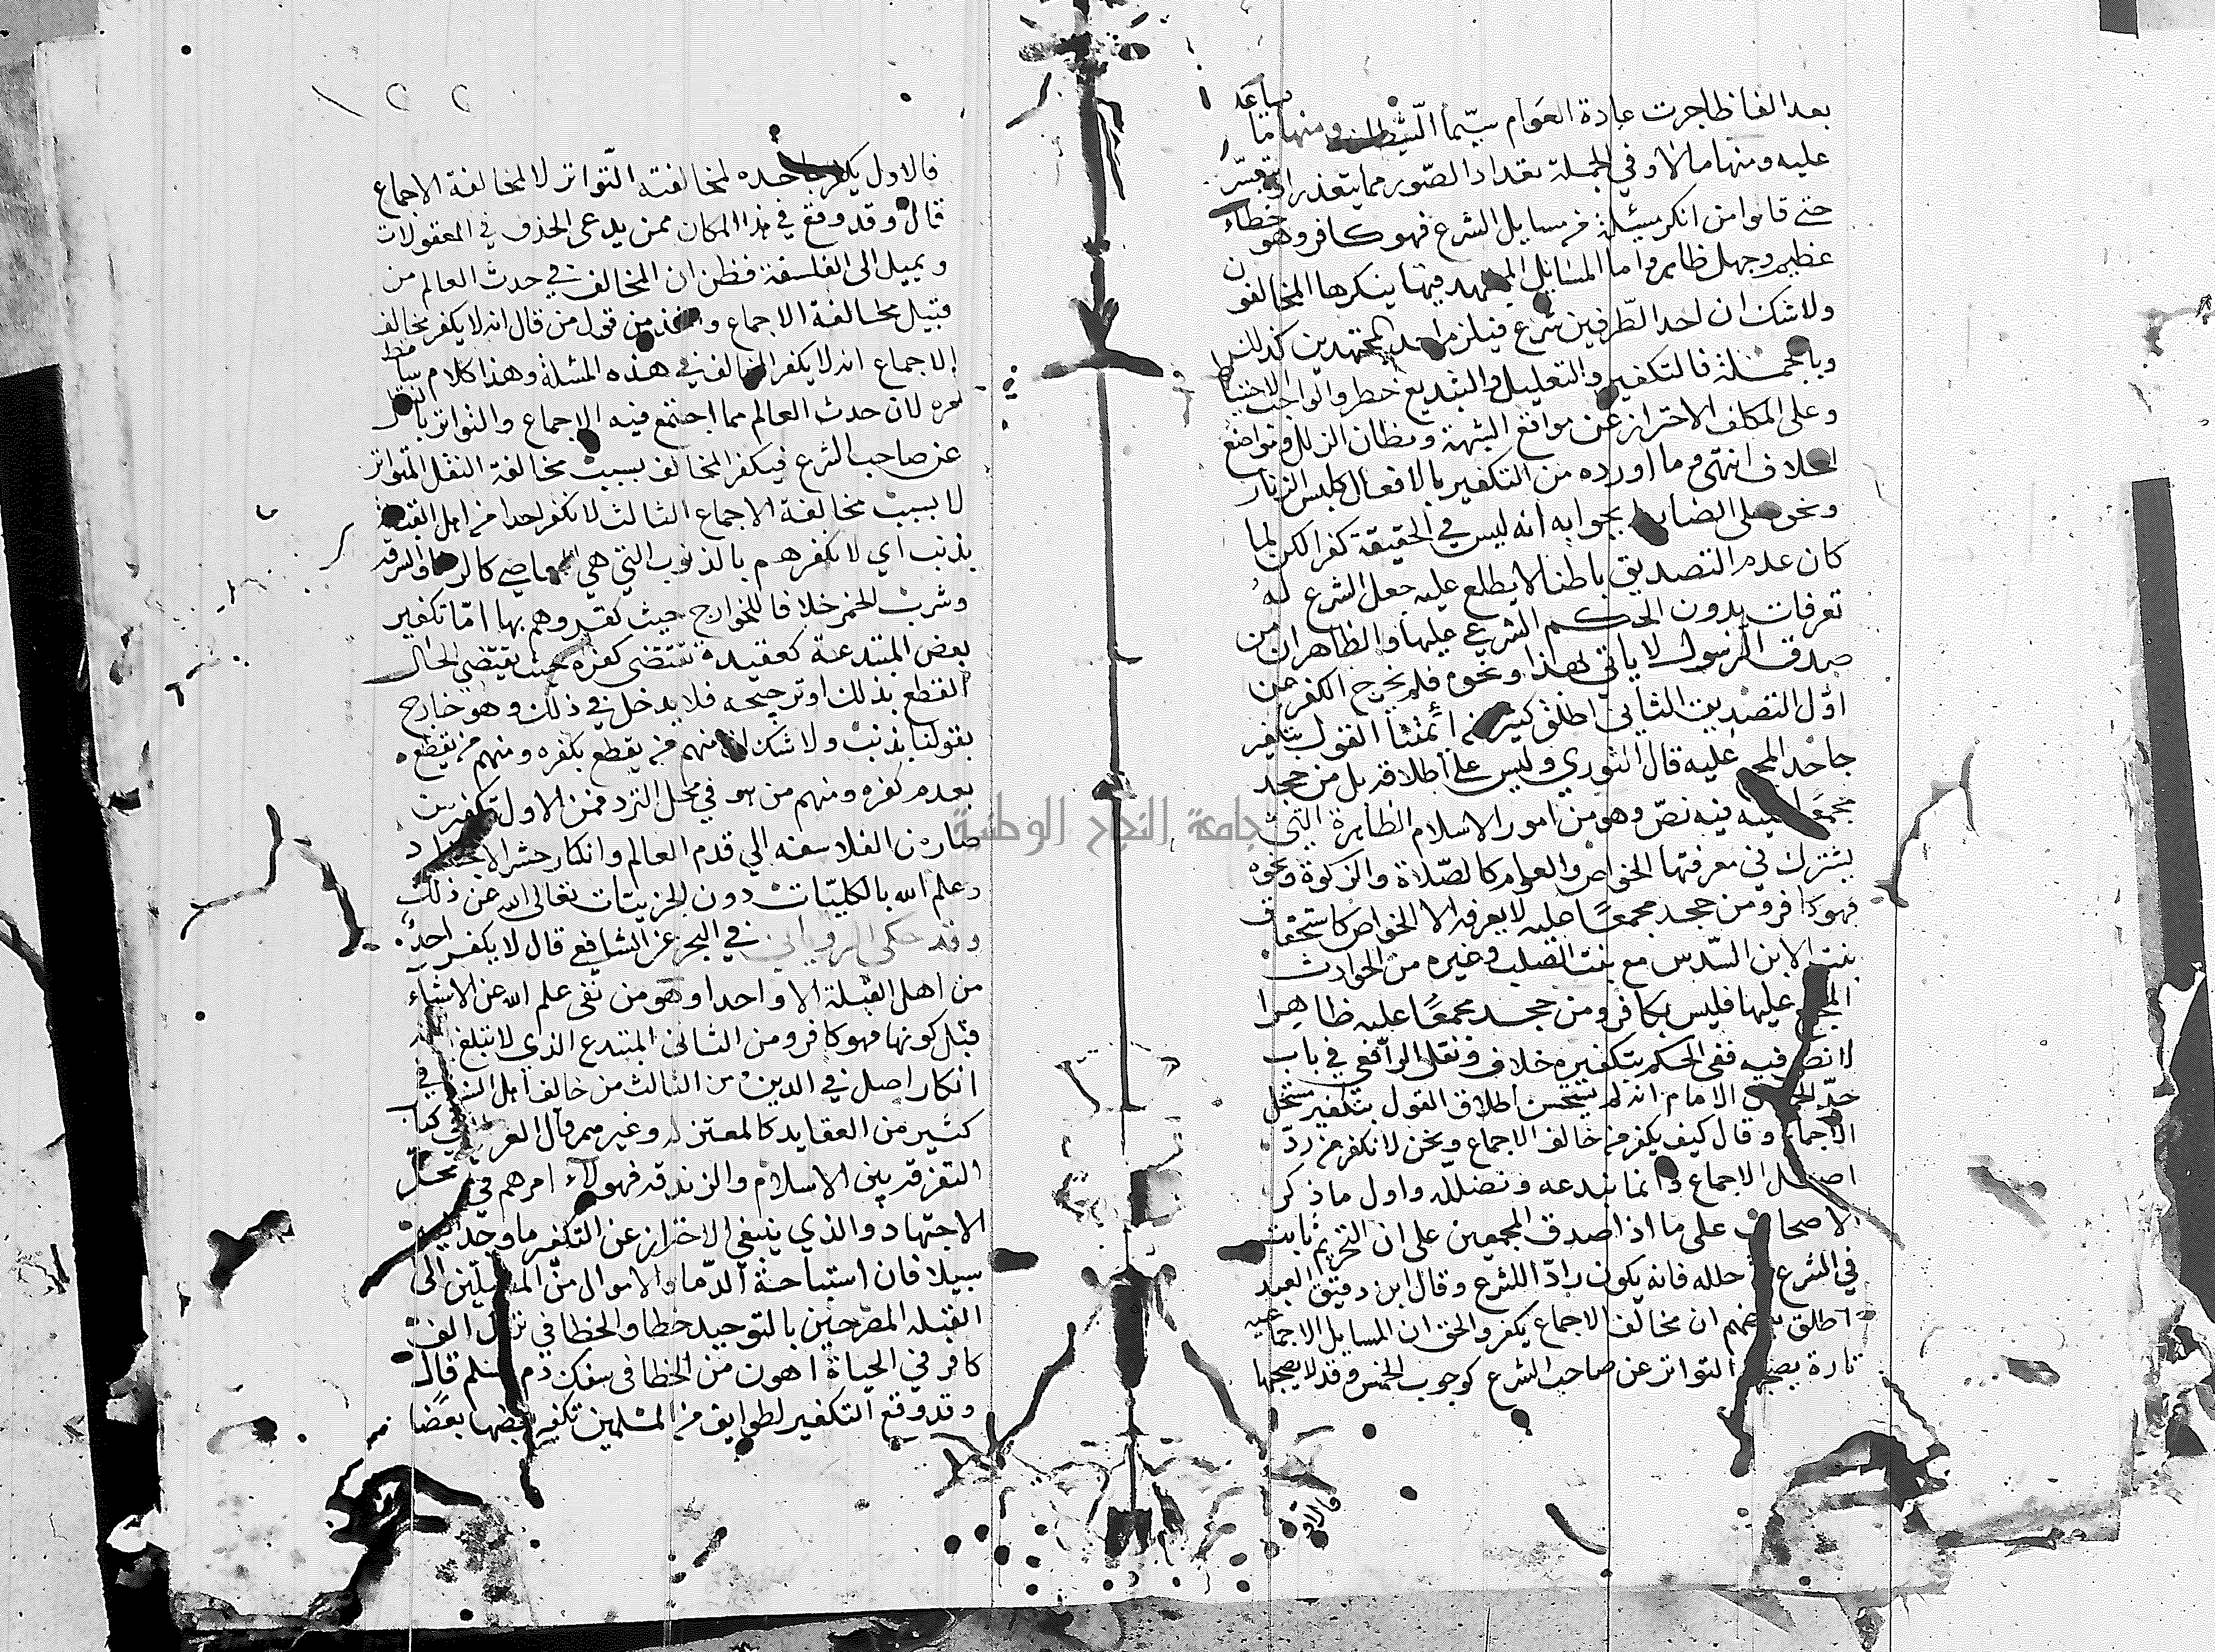 بعد الفاظا جرت عادة العوام سيما الشطار ومنها ما يساعد
عليه ومنها ما لا وفي الجملة تعداد الصور مما يتعذر او يتعسر
حتى قالوا من انكر مسئلة من مسايل الشرع فهو كافر وهو خطاء
عظيم وجهل ظاهر واما المسايل المجتهد فيها ينكرها المخالفون
ولا شك ان احد الطرفين شرع فيلزم احد المجتهدين كذلك
وبالجملة فالتكفير والتعليل والتبديع خطر والواجب الاحتياط
وعلى المكلف الاحتراز عن مواقع الشبهة ومظان الزلل ومواضع
الخلاف انتهى وما اورده من التكفير بالافعال كلبس الزنار
ونحو على الضابط بجوابه انه ليس في الحقيقة كفرا لكن لما
كان عدم التصديق باطنا لا يطلع عليه جعل الشرع له
تعرفات يدون الحكم الشرعي عليها والظاهر ان من
صدق الرسول لا ياتي بهذا ونحوه فلم يخرج الكفر عن
اول التصديق الثاني اطلق كثير من أئمتنا القول بتكفير
جاحد المجمع عليه قال النوري وليس على اطلاقه بل من جحد
مجمعا عليه فيه نص وهو من امور الاسلام الظاهرة التي
يشترك في معرفتها الخواص والعوام كالصلاة والزكوة ونحوه
فهو كافر ومن جحد مجمعا عليه لا يعرفه الا الخواص كاستحقاق
بنت الابن السدس مع بنت الصلب وغيره من الحوادث
المجمع عليها فليس بكافر ومن جحد مجمعا عليه ظاهرا
لا نص فيه ففي الحكم بتكفيره خلاف ونقل الرافعي في باب
حد الخمر عن الامام انه لم يستحسن اطلاق القول بتكفير مستحل
الاجماع وقال كيف يكفر من خالف الاجماع ونحن لا نكفر من رد
اصل الاجماع وانما نبدعه ونضلله واول ما ذكر
الاصحاب على ما اذا صدق المجمعين على ان التحريم ثابت
في الشرع حلله فانه يكون رادا للشرع وقال ابن دقيق العيد
اطلق بعضهم ان مخالف الاجماع يكفر والحق ان المسايل الاجماعيه
تارة يصحبها التواتر عن صاحب الشرع كوجوب الخمس وقد لا يصحبها
فالاول
١٢٢
فالاول يكفر جاحده لمخالفته التواتر لا لمخالفة الاجماع
قال وقد وقع في هذا المكان ممن يدعي الحذق في المعقولات
ويميل الى الفلسفة فظن ان المخالف في حدث العالم من
قبيل مخالفة الاجماع واخذ من قول من قال انه لا يكفر مخالف
الاجماع انه لا يكفر المخالف في هذه المسئلة وهذا كلام ساقط
لان حدث العالم مما اجتمع فيه الاجماع والتواتر بالنقل
عن صاحب الشرع فيكفر المخالف بسبب مخالفة النقل المتواتر
لا بسبب مخالفة الاجماع الثالث لا نكفر احدا من اهل القبلة
بذنب اي لا نكفرهم بالذنوب التي هي المعاصي كالزنا والسرقة
وشرب الخمر خلافا للخوارج حيث كفروهم بها اما تكفير
بعض المبتدعة كعقيدة تقتضي كفره بحيث يقتضي الحال
القطع بذلك او ترجيحه فلا يدخل في ذلك وهو خارج
بقولنا بذنب ولا شك ان منهم من يقطع بكفره ومنهم من يقطع
بعدم كفره ومنهم من هو في محل التردد فمن الاول تكفير من
صار من الفلاسفه الي قدم العالم وانكار حشر الاجساد
وعلم الله بالكليات دون الجزيئات تعالى الله عن ذلك
وقد حكى الروياني في البحر عن الشافعي قال لا يكفر احد
من اهل القبلة الا واحدا وهو من نفى علم الله عن الاشياء
قبل كونها فهو كافر ومن الثاني المبتدع الذي لا تبلغ
انكار اصل في الدين ومن الثالث من خالف اهل السنة في
كثير من العقايد كالمعتزله وغيرهم قال الغزالي في كتاب
التفرقه بين الاسلام والزندقه فهولاء امرهم في محل
الاجتهاد والذي ينبغي الاحتراز عن التكفير ما وجد اليه
سبيلا فان استباحة الدما والاموال من المصلين الى
القبله المصرحين بالتوحيد خطا والخطا في ترك الف
كافر في الحياة اهون من الخطا في سفك دم مسلم قال
وقد وقع التكفير لطوايف من المسلمين تكفر بعضها بعضا
جامعة النجاح الوطنية